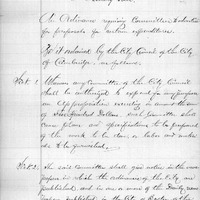 An Ordinance requiring Committees to advertise
for proposals for certain expenditures.
Be it ordained by the City Council of the City
of Cambridge, as follows:
Sect. 1. Whenever any Committee of the City Council
shall be authorized to expend an appropriation
or
Dollars, such Committee shall
cause plans and specifications to be prepared
of the work to be done, or labor and mate-
rials to be furnished.
Sect. 2. The said Committee shall give notice in the news-
papers in which the ordinances of the City are
published, and in one or more of the daily news-
papers published in the City of Boston, of the